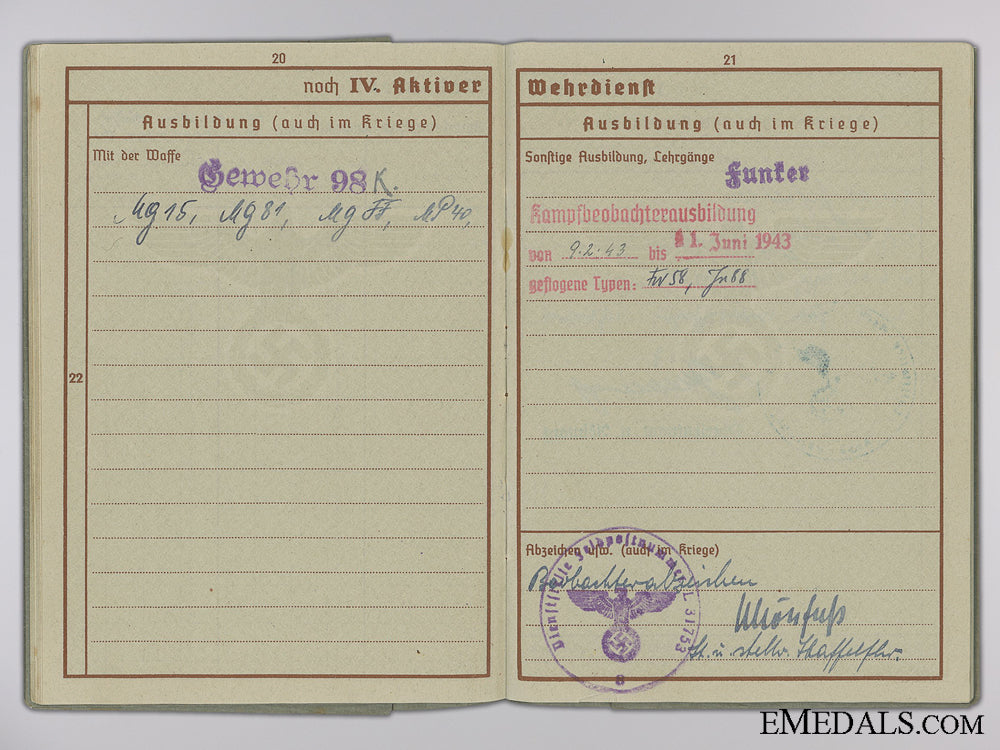 20
noch IV. Aktiver
Ausbildung (auch im Kriege)
Mit der Waffe
Gewehr 98 K.
Mg 15, Mg 81, Mg FF, MP 40,
22
21
Wehrdienst
Ausbildung (auch im Kriege)
Sonstige Ausbildung, Lehrgänge
Funker
Kampfbeobachterausbildung
von 9.2.43 bis 11. Juni 1943
geflogene Typen: Fw 58, Ju 88
Abzeichen usw. (auch im Kriege)
Beobachterabzeichen
Lt. u. stellv. Staffelfhr.
Dienststelle Feldpostnummer L 31753
EMEDALS.COM